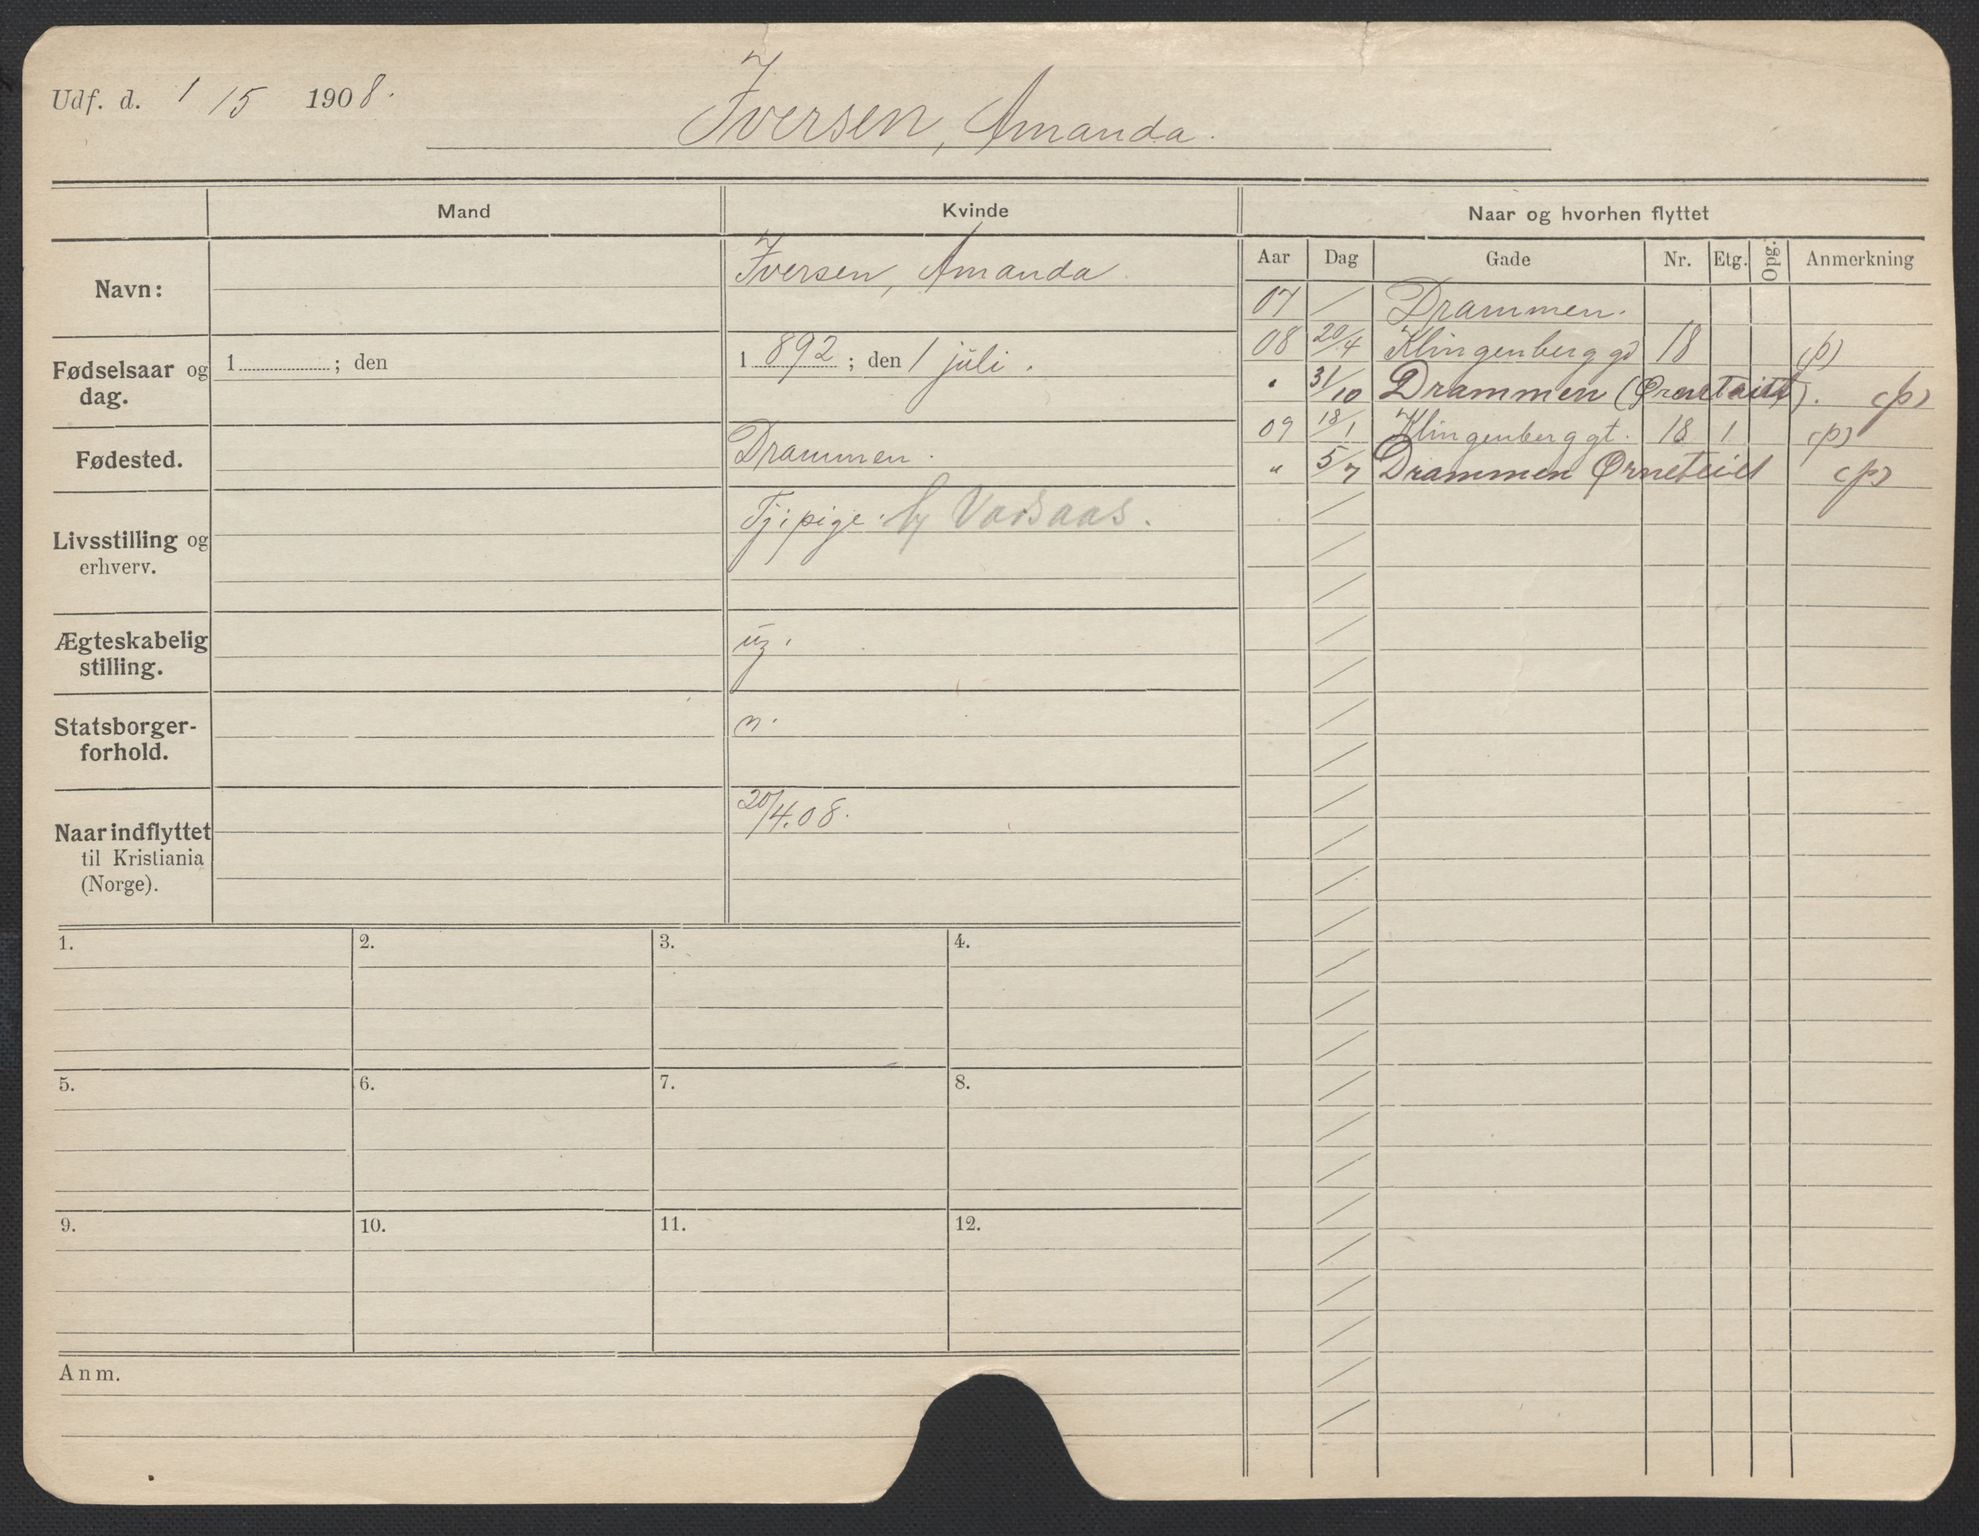 Udf. d. 1 15 1908.
Iversen, Amanda.
Mand Kvinde Naar og hvorhen flyttet
Aar Dag Gade Nr. Etg. Opg. Anmerkning
Navn: Iversen, Amanda.
Fødselsaar og dag. 1 ; den 1 892 ; den 1 juli.
Fødested. Drammen.
Livsstilling og erhverv. Tj. pige.
Ægteskabelig stilling. ug.
Statsborger-
forhold. n.
Naar indflyttet 20/4.08.
til Kristiania
(Norge).
07 / Drammen.
08 20/4 Klingenberg gd 18 (p)
" 31/10 Drammen (p)
09 18/1 Klingenberg gt. 18 1 (p)
" 5/7 Drammen (p)
1. 2. 3. 4.
5. 6. 7. 8.
9. 10. 11. 12.
Anm.